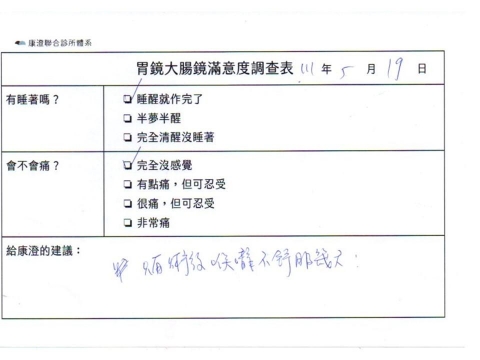 康澄聯合診所體系
胃鏡大腸鏡滿意度調查表 111 年 5 月 19 日
有睡著嗎？
☐ 睡醒就作完了
☐ 半夢半醒
☐ 完全清醒沒睡著
會不會痛？
☐ 完全沒感覺
☐ 有點痛，但可忍受
☐ 很痛，但可忍受
☐ 非常痛
給康澄的建議：
術後喉嚨不舒服幾天